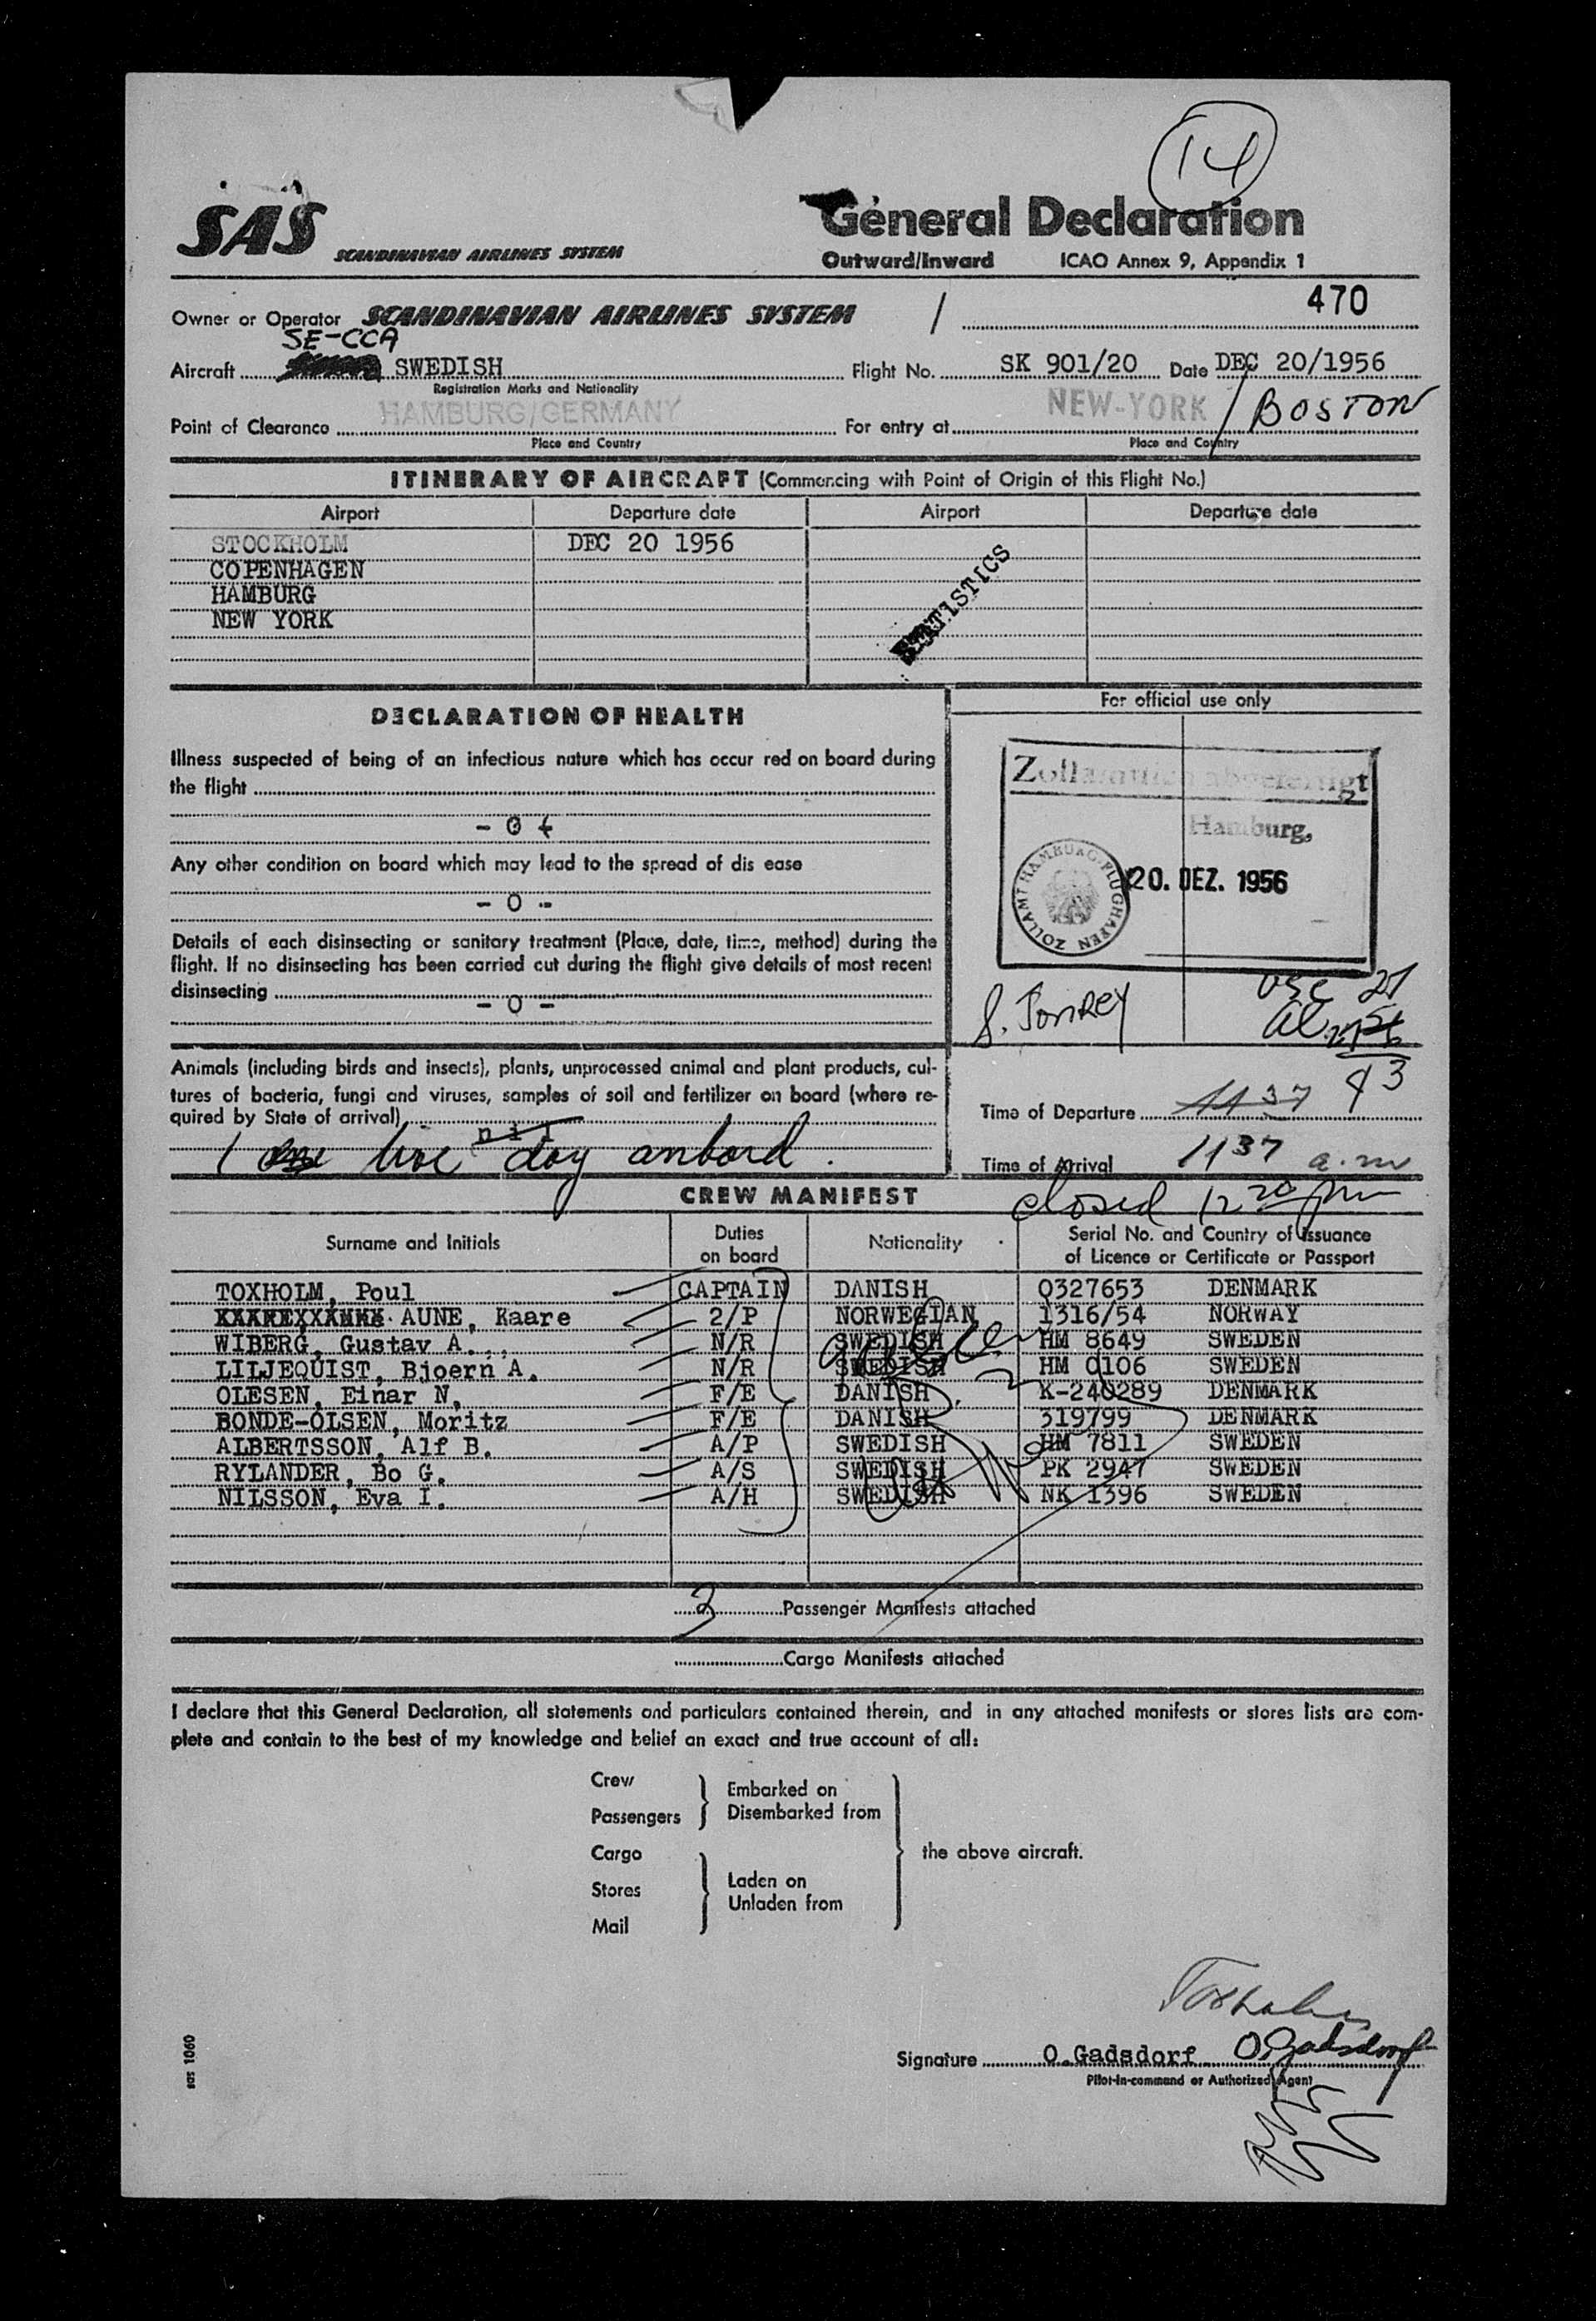 14
SAS SCANDINAVIAN AIRLINES SYSTEM
General Declaration
Outward/Inward ICAO Annex 9, Appendix 1
470
Owner or Operator SCANDINAVIAN AIRLINES SYSTEM /
SE-CCA
Aircraft SWEDISH Flight No. SK 901/20 Date DEC 20/1956
Registration Marks and Nationality
Point of Clearance HAMBURG/GERMANY For entry at NEW-YORK / BOSTON
Place and Country Place and Country
ITINERARY OF AIRCRAFT (Commencing with Point of Origin of this Flight No.)
Airport Departure date Airport Departure date
STOCKHOLM DEC 20 1956
COPENHAGEN
HAMBURG
NEW YORK
STATISTICS
DECLARATION OF HEALTH
For official use only
Illness suspected of being of an infectious nature which has occur red on board during
the flight
- 0 -
Any other condition on board which may lead to the spread of dis ease
- 0 -
Details of each disinsecting or sanitary treatment (Place, date, time, method) during the
flight. If no disinsecting has been carried out during the flight give details of most recent
disinsecting
- 0 -
Hamburg,
ZOLLAMT HAMBURG-FLUGHAFEN
20. DEZ. 1956
USC 27
43
Animals (including birds and insects), plants, unprocessed animal and plant products, cul-
tures of bacteria, fungi and viruses, samples of soil and fertilizer on board (where re-
quired by State of arrival)
nil
1 live dog onboard.
Time of Departure 1137
Time of Arrival 1137 a.m
closed 12 20 pm
CREW MANIFEST
Surname and Initials Duties on board Nationality Serial No. and Country of Issuance of Licence or Certificate or Passport
TOXHOLM, Poul CAPTAIN DANISH 0327653 DENMARK
AUNE, Kaare 2/P NORWEGIAN 1316/54 NORWAY
WIBERG, Gustav A. N/R SWEDISH HM 8649 SWEDEN
LILJEQUIST, Bjoern A. N/R SWEDISH HM 0106 SWEDEN
OLESEN, Einar N. F/E DANISH K-240289 DENMARK
BONDE-OLSEN, Moritz F/E DANISH 319799 DENMARK
ALBERTSSON, Alf B. A/P SWEDISH HM 7811 SWEDEN
RYLANDER, Bo G. A/S SWEDISH PK 2947 SWEDEN
NILSSON, Eva I. A/H SWEDISH NK 1396 SWEDEN
Passenger Manifests attached
Cargo Manifests attached
I declare that this General Declaration, all statements and particulars contained therein, and in any attached manifests or stores lists are com-
plete and contain to the best of my knowledge and belief an exact and true account of all:
Crew
Passengers
Embarked on
Disembarked from
Cargo
Stores
Mail
Laden on
Unladen from
the above aircraft.
Toxholm
Signature O.Gadsdorf O.Gadsdorf
Pilot-in-command or Authorized Agent
sas 1060